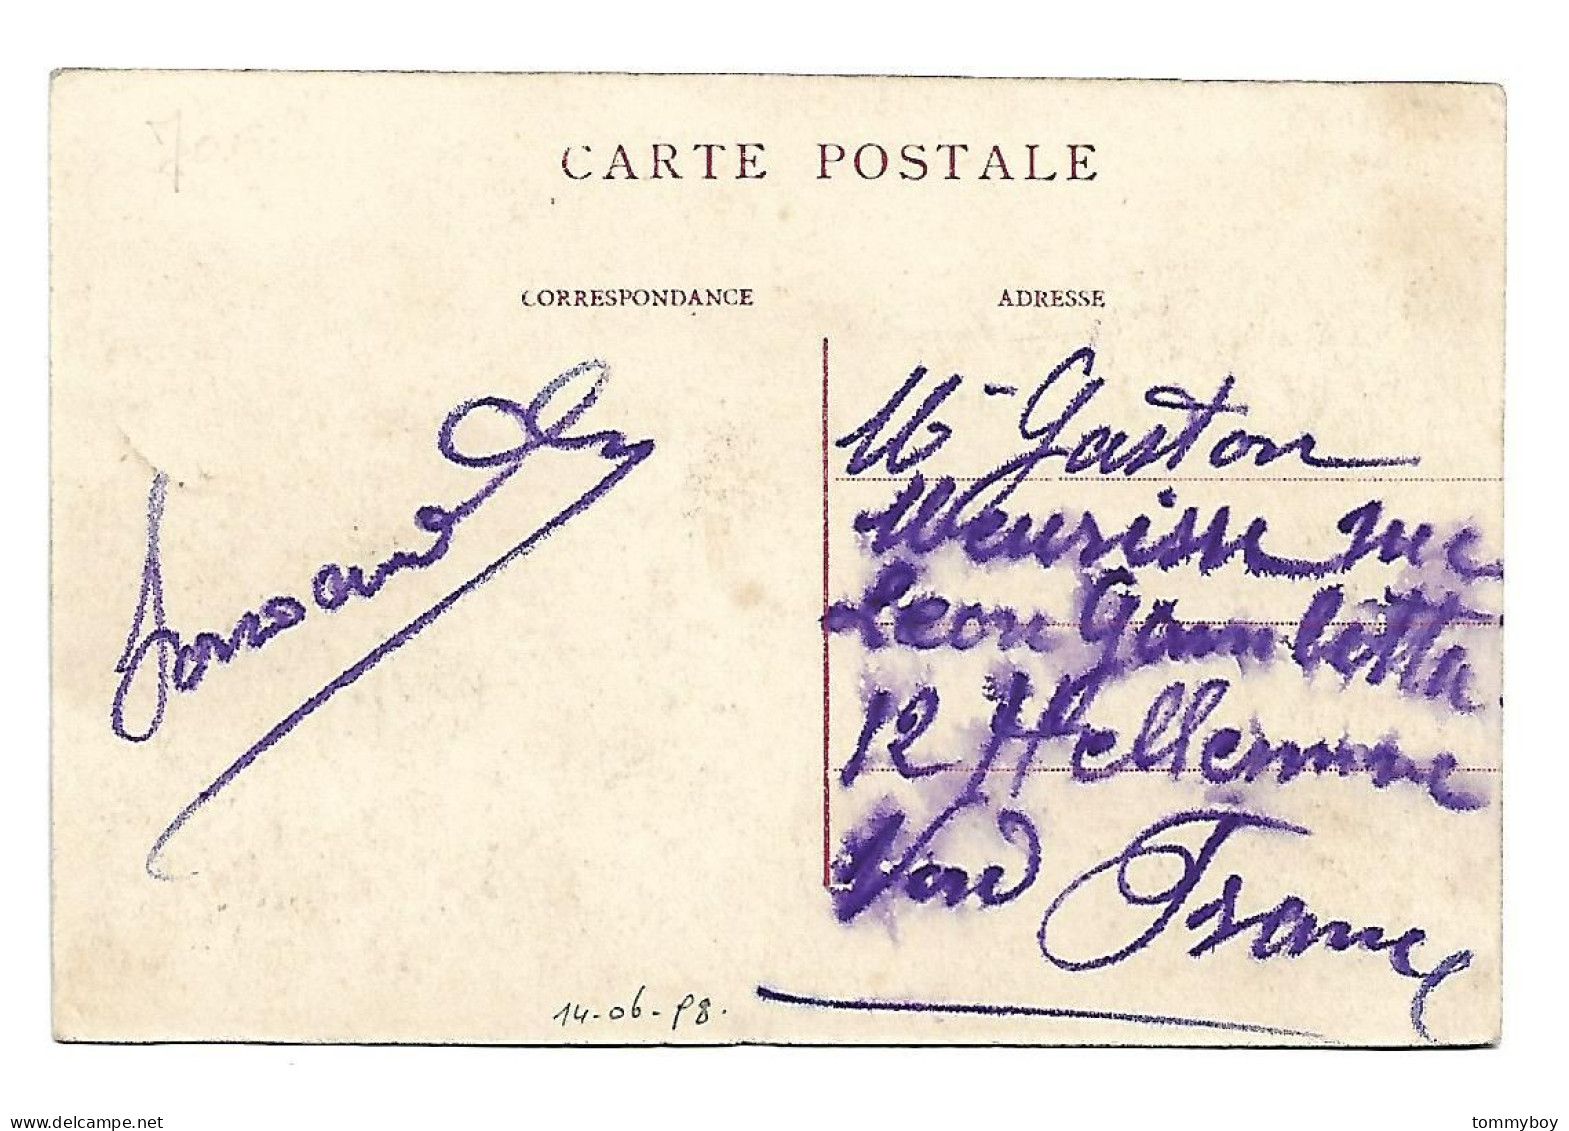 CARTE POSTALE
CORRESPONDANCE
ADRESSE
M- Gaston
Meurisse rue
Leon Gambetta
12 Hellemme
Nord France
14-06-98.
www.delcampe.net
tommyboy